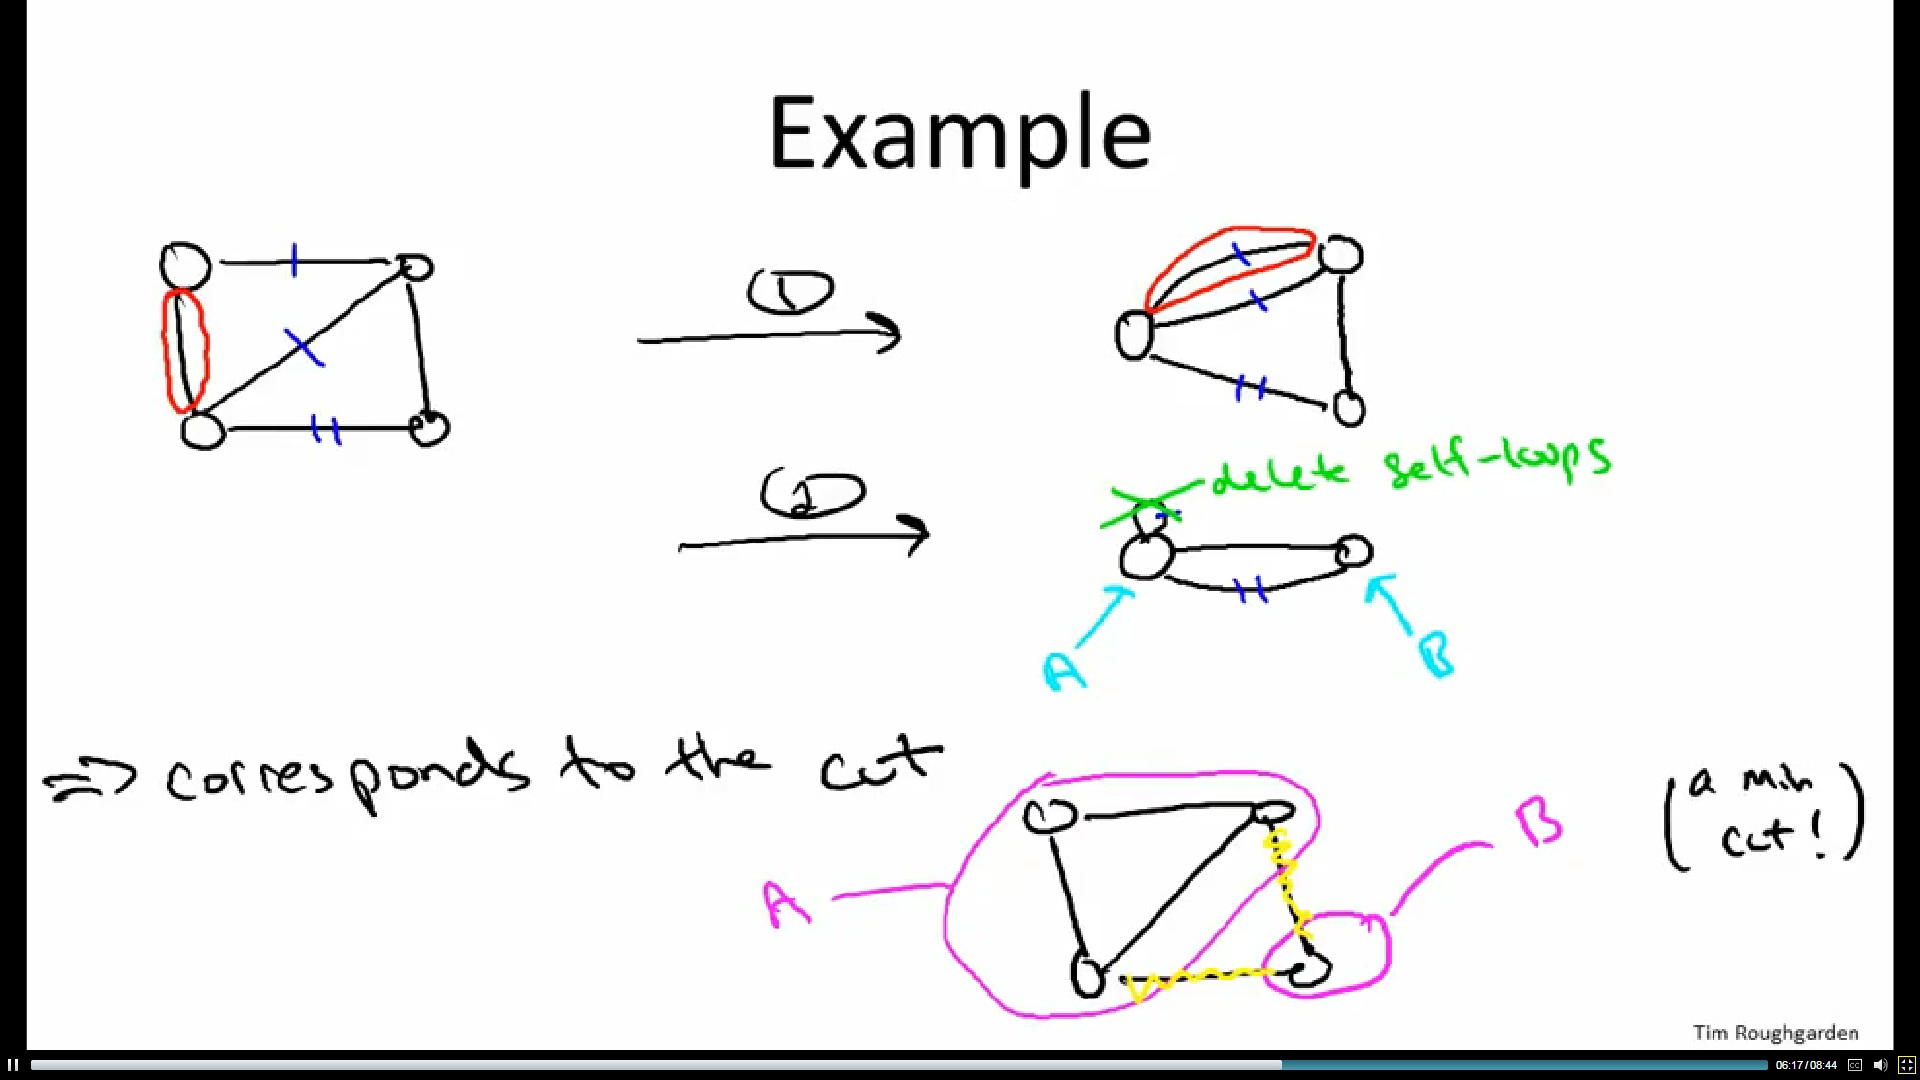 Example
1
delete self-loops
2
A
B
=> corresponds to the cut
(a min
cut!)
A
B
Tim Roughgarden
06:17/08:44
CC